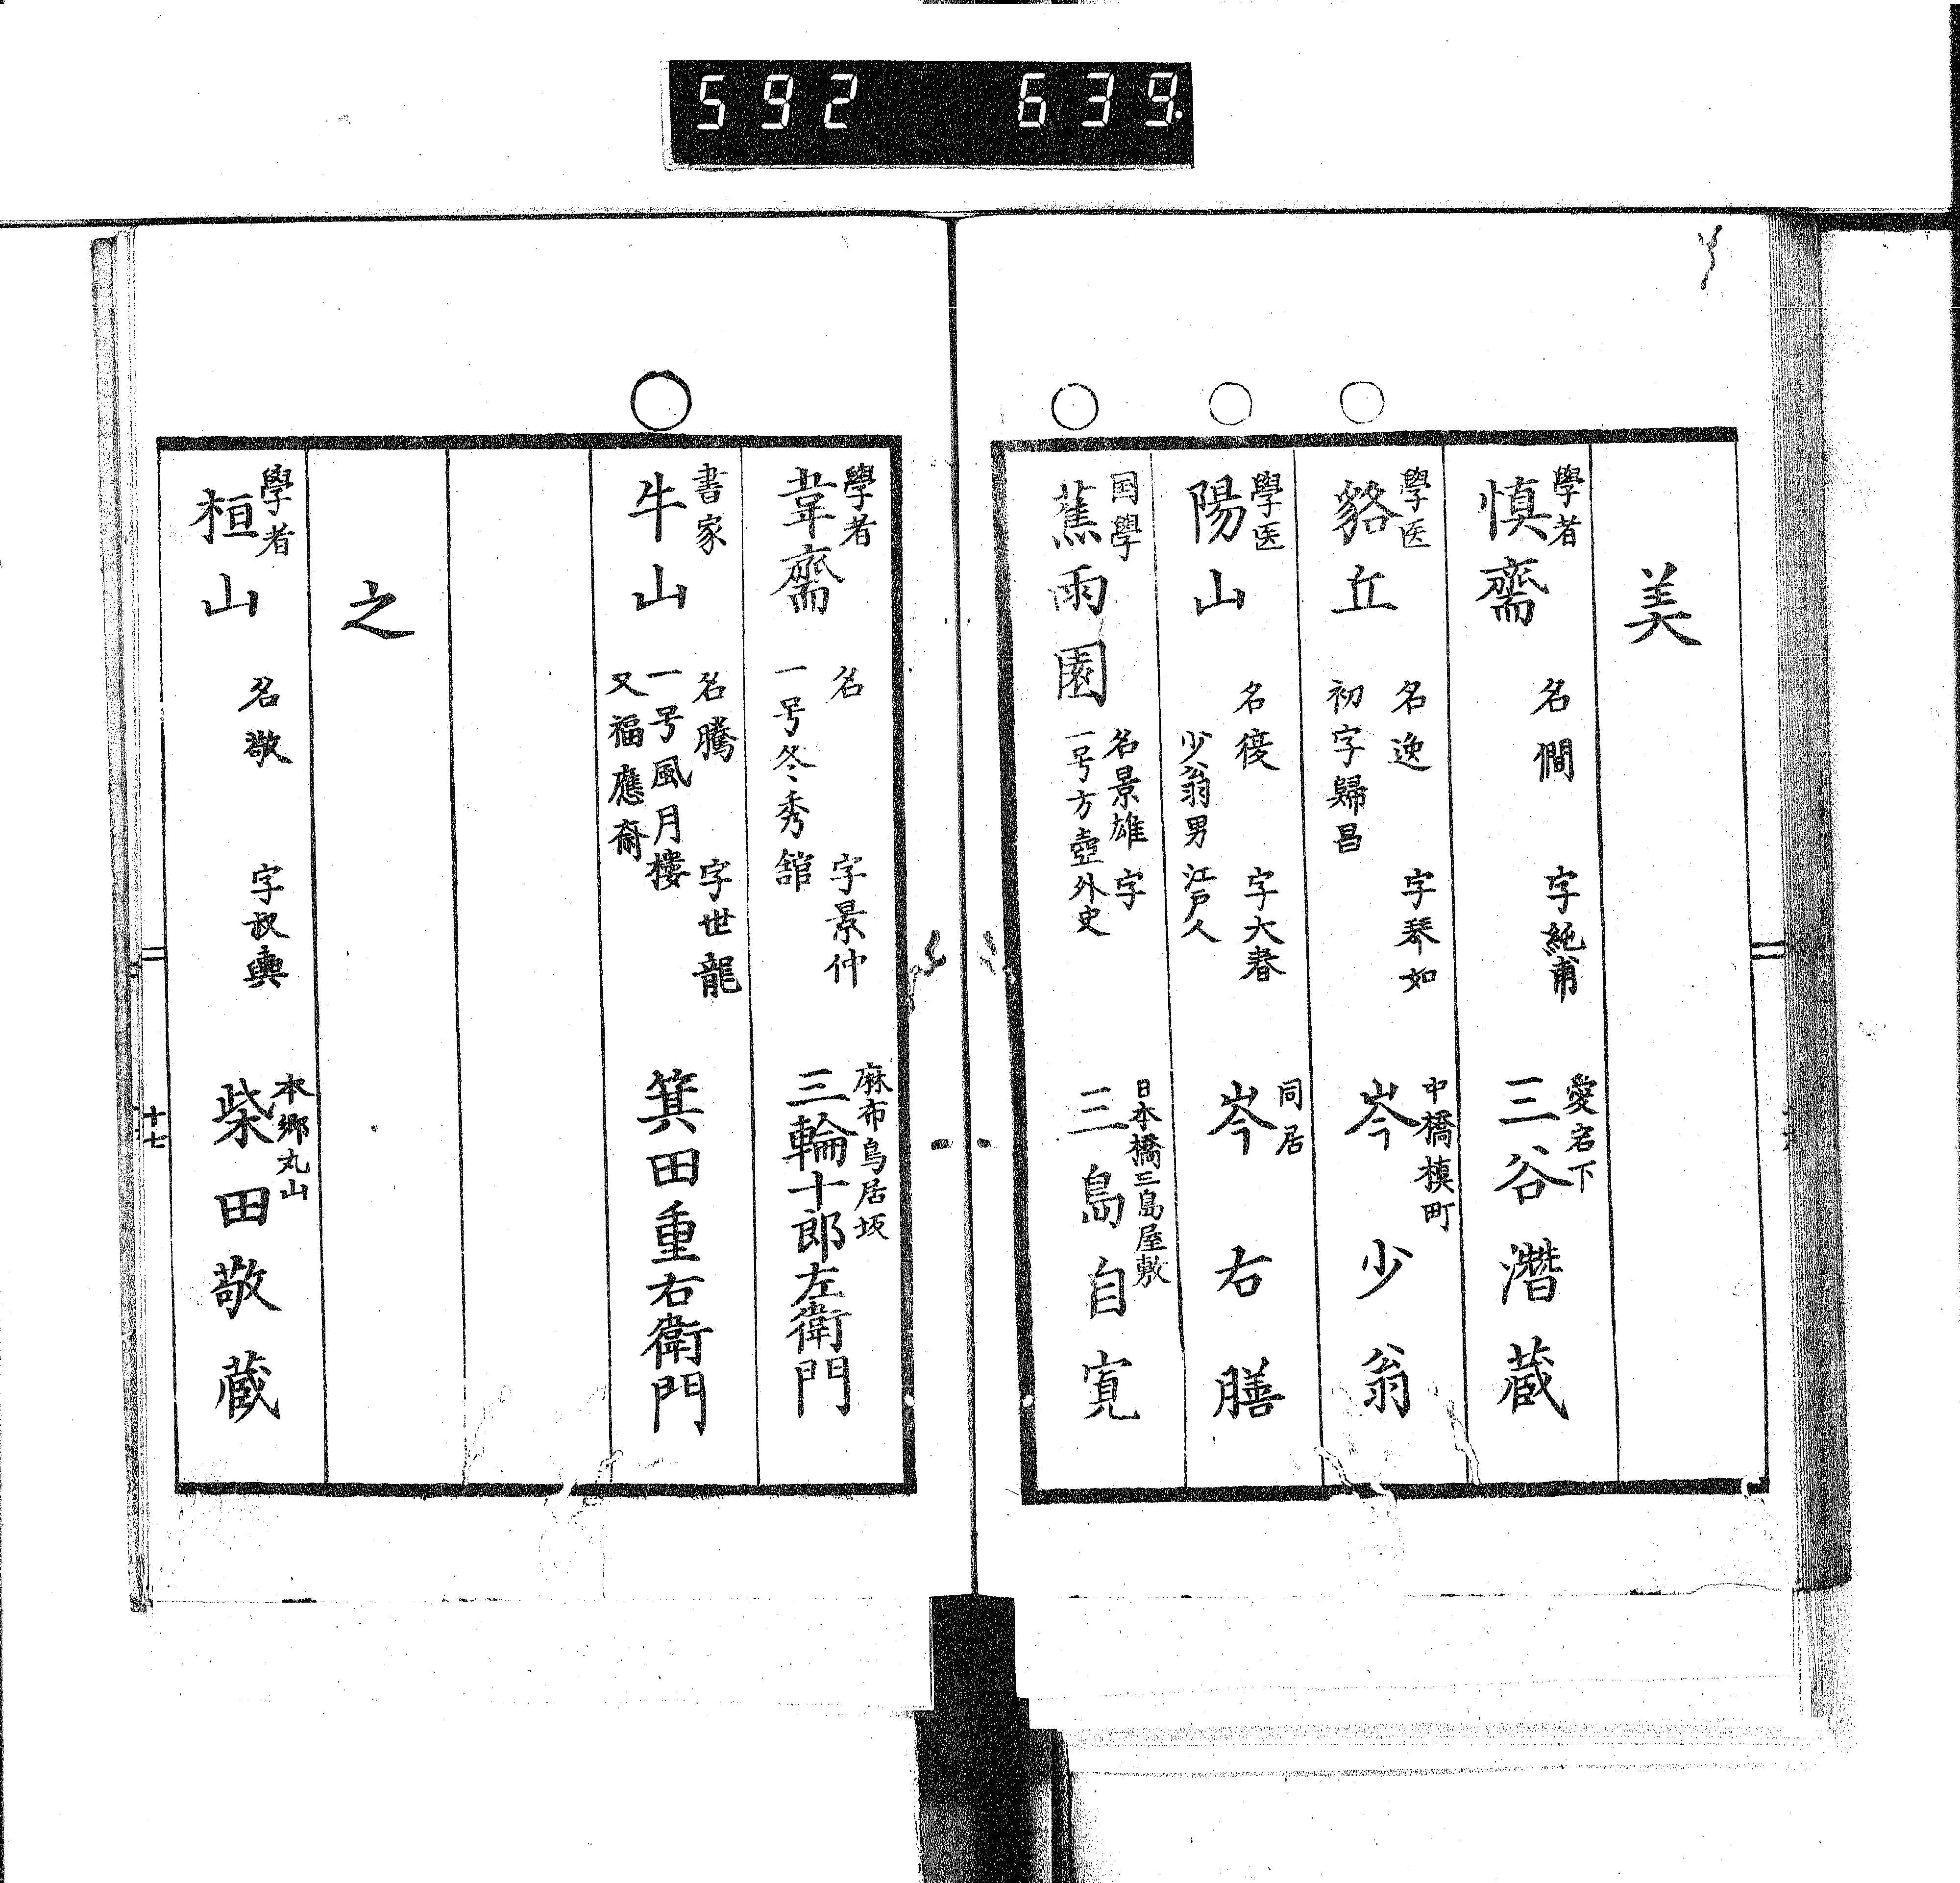 592 639.
美
學者
慎齋 名僩 字純甫 愛宕下 三谷潛蔵
學医
貉丘 名逸 字琴如 中橋槙町 岑少翁
初字歸昌
學医
陽山 名 字大春 同居 岑右膳
少翁男 江戸人
国學
蕉雨園 名景雄 字 日本橋三島屋敷 三島自寛
一号方壺外史
學者
葦齋 名 字景仲 麻布鳥居坂 三輪十郎左衛門
一号冬秀舘
書家
牛山 名騰 字世龍 箕田重右衛門
一号風月樓
又福應齋
之
學者
桓山 名敬 字叔輿 本郷丸山 柴田敬蔵
十七